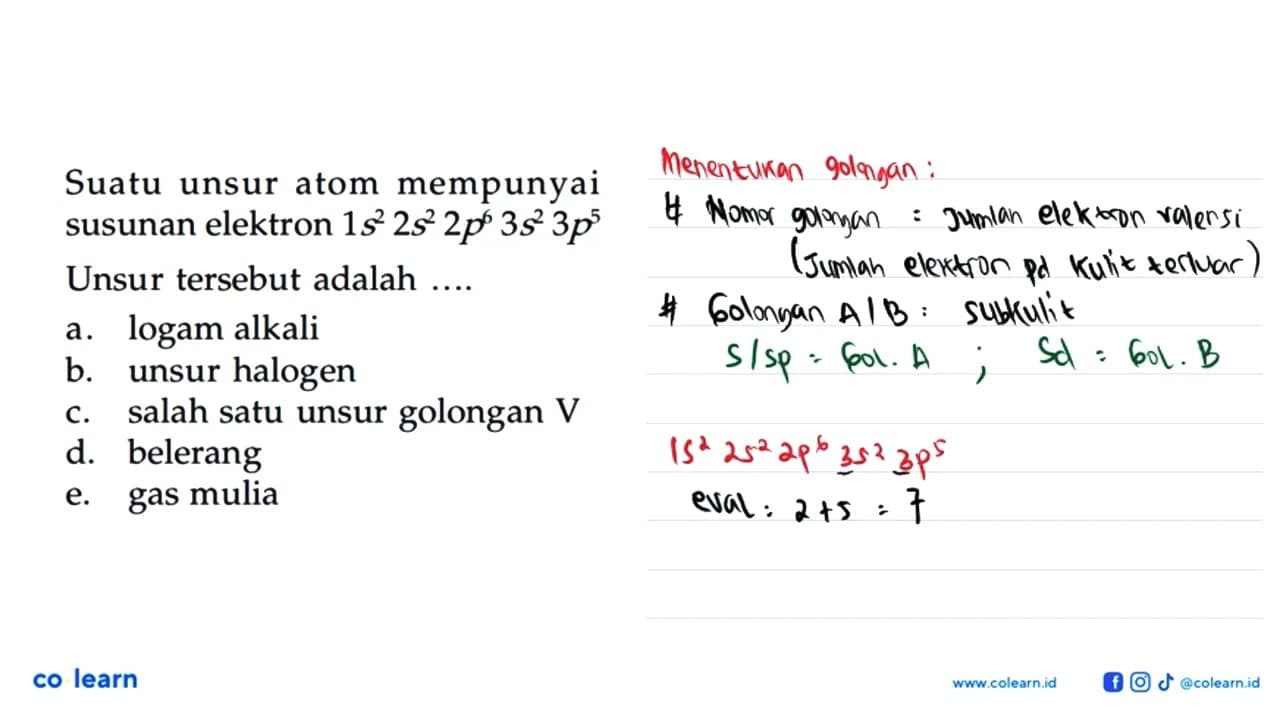 Suatu unsur atom mempunyai
susunan elektron 1s² 2s² 2p⁶ 3s² 3p⁵
Unsur tersebut adalah ....
a. logam alkali
b. unsur halogen
c. salah satu unsur golongan V
d. belerang
e. gas mulia
Menentukan golongan :
# Nomor golongan = Jumlah elektron valensi
(Jumlah elektron pd kulit terluar)
# Golongan A/B : Subkulit
s/sp = Gol. A ; Sd = Gol. B
1s² 2s² 2p⁶ 3s² 3p⁵
eval : 2+5 = 7
co learn
www.colearn.id @colearn.id